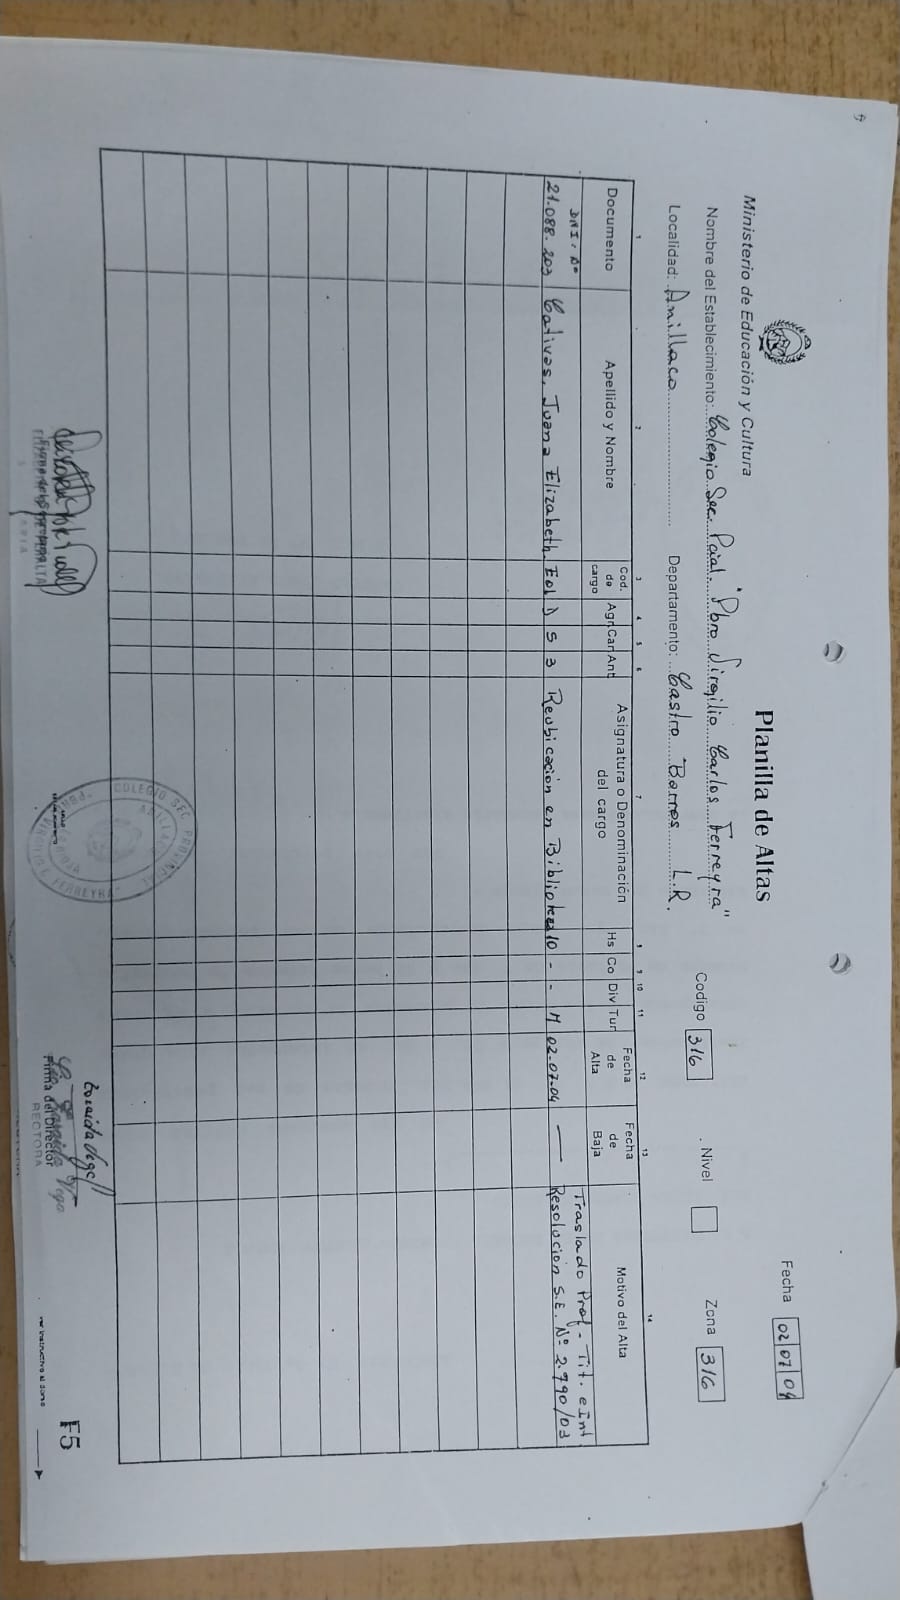 Ministerio de Educación y Cultura
Planilla de Altas
Fecha 02 07 04
Nombre del Establecimiento: Colegio Sec. Pcial. "Pbro Virgilio Carlos Ferreyra"
Codigo 316
Nivel
Zona 316
Localidad: Anillaco
Departamento: Castro Barros L.R.
1 2 3 4 5 6 7 8 9 10 11 12 13 14
Documento
Apellido y Nombre
Cod. de cargo
Agr
Car
Ant
Asignatura o Denominación del cargo
Hs
Co
Div
Tur
Fecha de Alta
Fecha de Baja
Motivo del Alta
DNI. Nº
Traslado Prof - Tit. e Int.
21.088.203 Cativas, Juana Elizabeth D 5 3 Reubicacion en 10 - - M 02-07-04 — Resolucion S.E. Nº 2.790/03
COLEGIO SEC. PROVINCIAL
FERREYRA
ANILLACO
Zoraida Vega
Firma del Director
RECTORA
F5